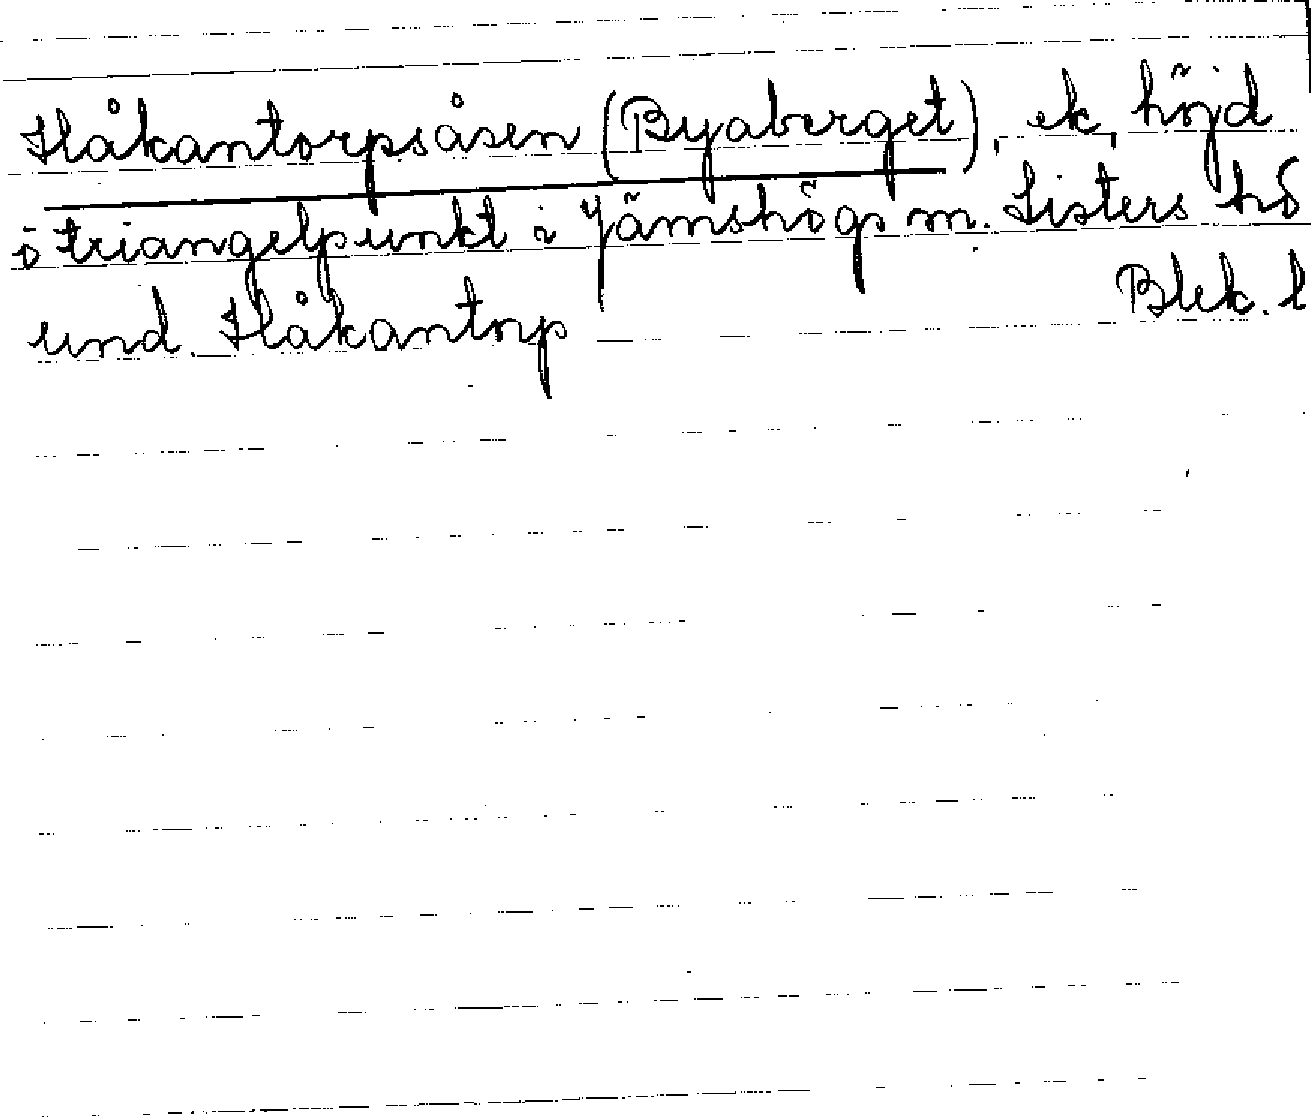 Håkantorpsåsen (Byaberget), ek, höjd
o triangelpunkt i Jämshögs sn. Listers hd
Blek. l
und. Håkantorp